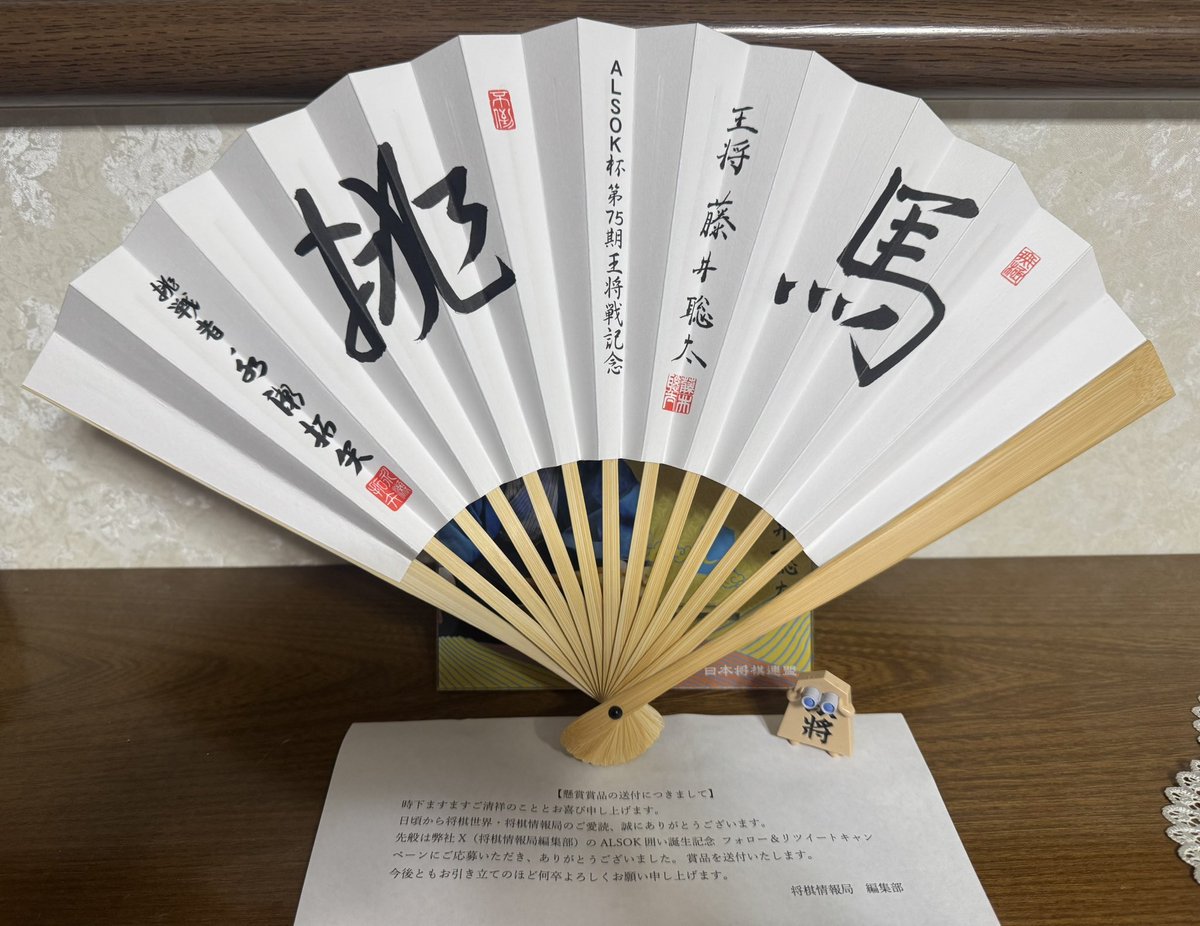 馬
王将 藤井聡太
ALSOK杯第75期王将戦記念
不倒
挑
挑戦者 永瀬拓矢
日本将棋連盟
将
【懸賞賞品の送付につきまして】
時下ますますご清祥のこととお喜び申し上げます。
日頃から将棋世界・将棋情報局のご愛読、誠にありがとうございます。
先般は弊社X(将棋情報局編集部)のALSOK囲い誕生記念 フォロー&リツイートキャン
ペーンにご応募いただき、ありがとうございました。賞品を送付いたします。
今後ともお引き立てのほど何卒よろしくお願い申し上げます。
将棋情報局 編集部